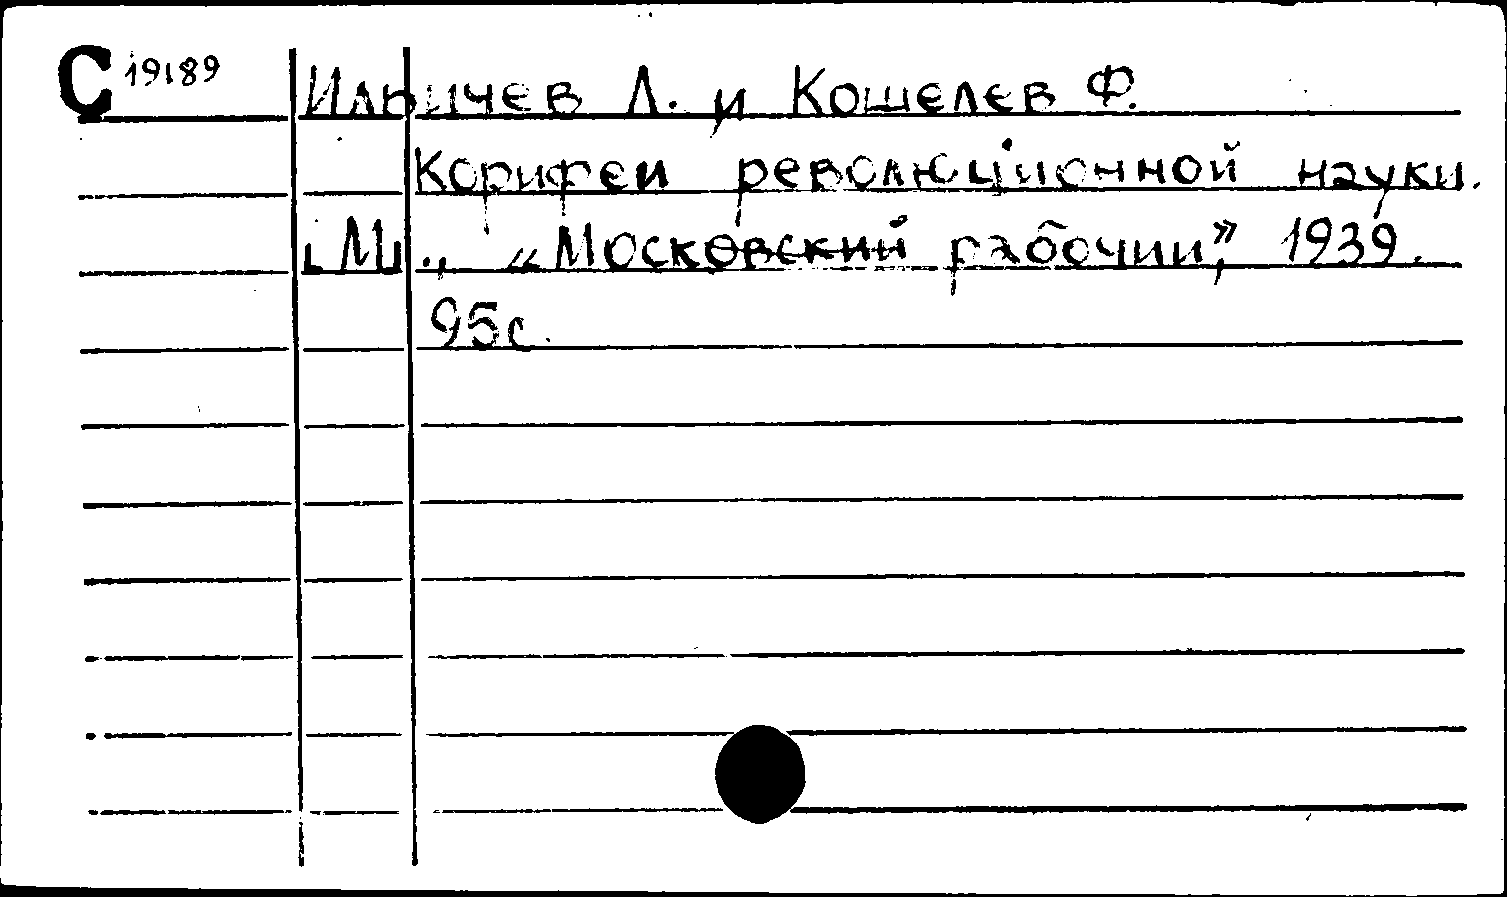 С 19189 Ильичев Л. и Кошелев Ф.
Корифеи революционной науки.
М., «Московский рабочии", 1939.
95с.